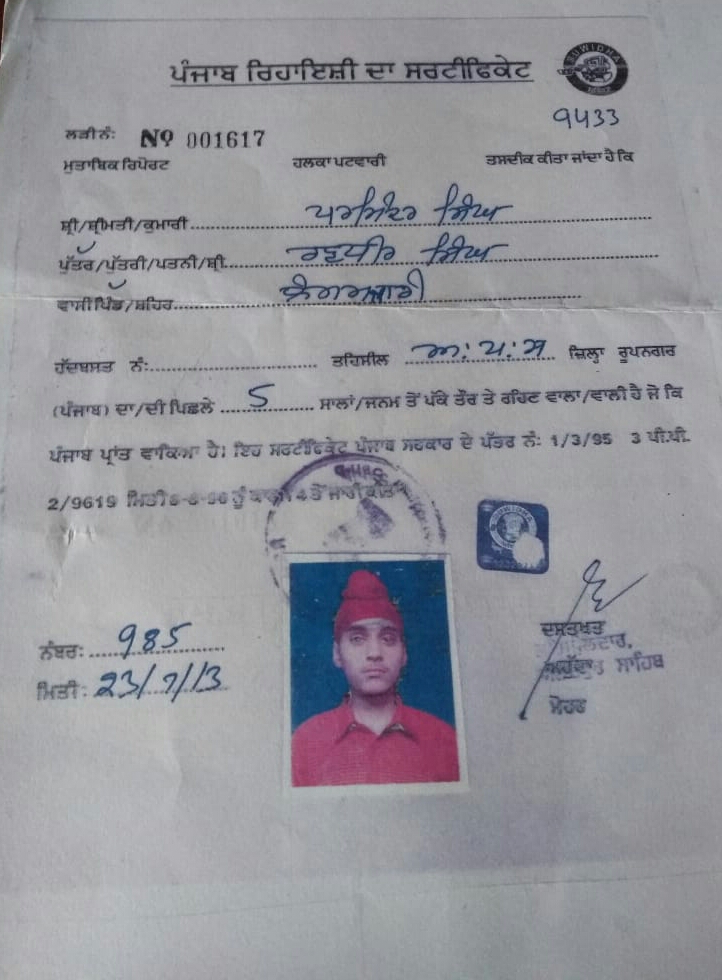 SUWIDHA
ਪੰਜਾਬ ਰਿਹਾਇਸ਼ੀ ਦਾ ਸਰਟੀਫਿਕੇਟ
9433
ਲੜੀ ਨੰ: Nº 001617
ਮੁਤਾਬਿਕ ਰਿਪੋਰਟ ਹਲਕਾ ਪਟਵਾਰੀ ਤਸਦੀਕ ਕੀਤਾ ਜਾਂਦਾ ਹੈ ਕਿ
ਸ਼੍ਰੀ/ਸ਼੍ਰੀਮਤੀ/ਕੁਮਾਰੀ ਸਿੰਘ
ਪੁੱਤਰ/ਪੁੱਤਰੀ/ਪਤਨੀ/ਸ਼੍ਰੀ ਰਣਧੀਰ ਸਿੰਘ
ਵਾਸੀ ਪਿੰਡ/ਸ਼ਹਿਰ
ਹੱਦਬਸਤ ਨੰ: ਤਹਿਸੀਲ ਅ:ਪ:ਸ ਜ਼ਿਲ੍ਹਾ ਰੂਪਨਗਰ
(ਪੰਜਾਬ) ਦਾ/ਦੀ ਪਿਛਲੇ 5 ਸਾਲਾਂ/ਜਨਮ ਤੋਂ ਪੱਕੇ ਤੌਰ ਤੇ ਰਹਿਣ ਵਾਲਾ/ਵਾਲੀ ਹੈ ਜੋ ਕਿ
ਪੰਜਾਬ ਪ੍ਰਾਂਤ ਵਾਕਿਆ ਹੈ। ਇਹ ਸਰਟੀਫਿਕੇਟ ਪੰਜਾਬ ਸਰਕਾਰ ਦੇ ਪੱਤਰ ਨੰ: 1/3/95 3 ਪੀ.ਪੀ.
2/9619 ਮਿਤੀ 6-6-96 ਨੂੰ ਤੋਂ ਜਾਰੀ ਕੀਤਾ
ਨੰਬਰ: 985
ਮਿਤੀ: 23/7/13
ਦਸਤਖਤ
ਸਾਹਿਬ
ਮੋਹਰ